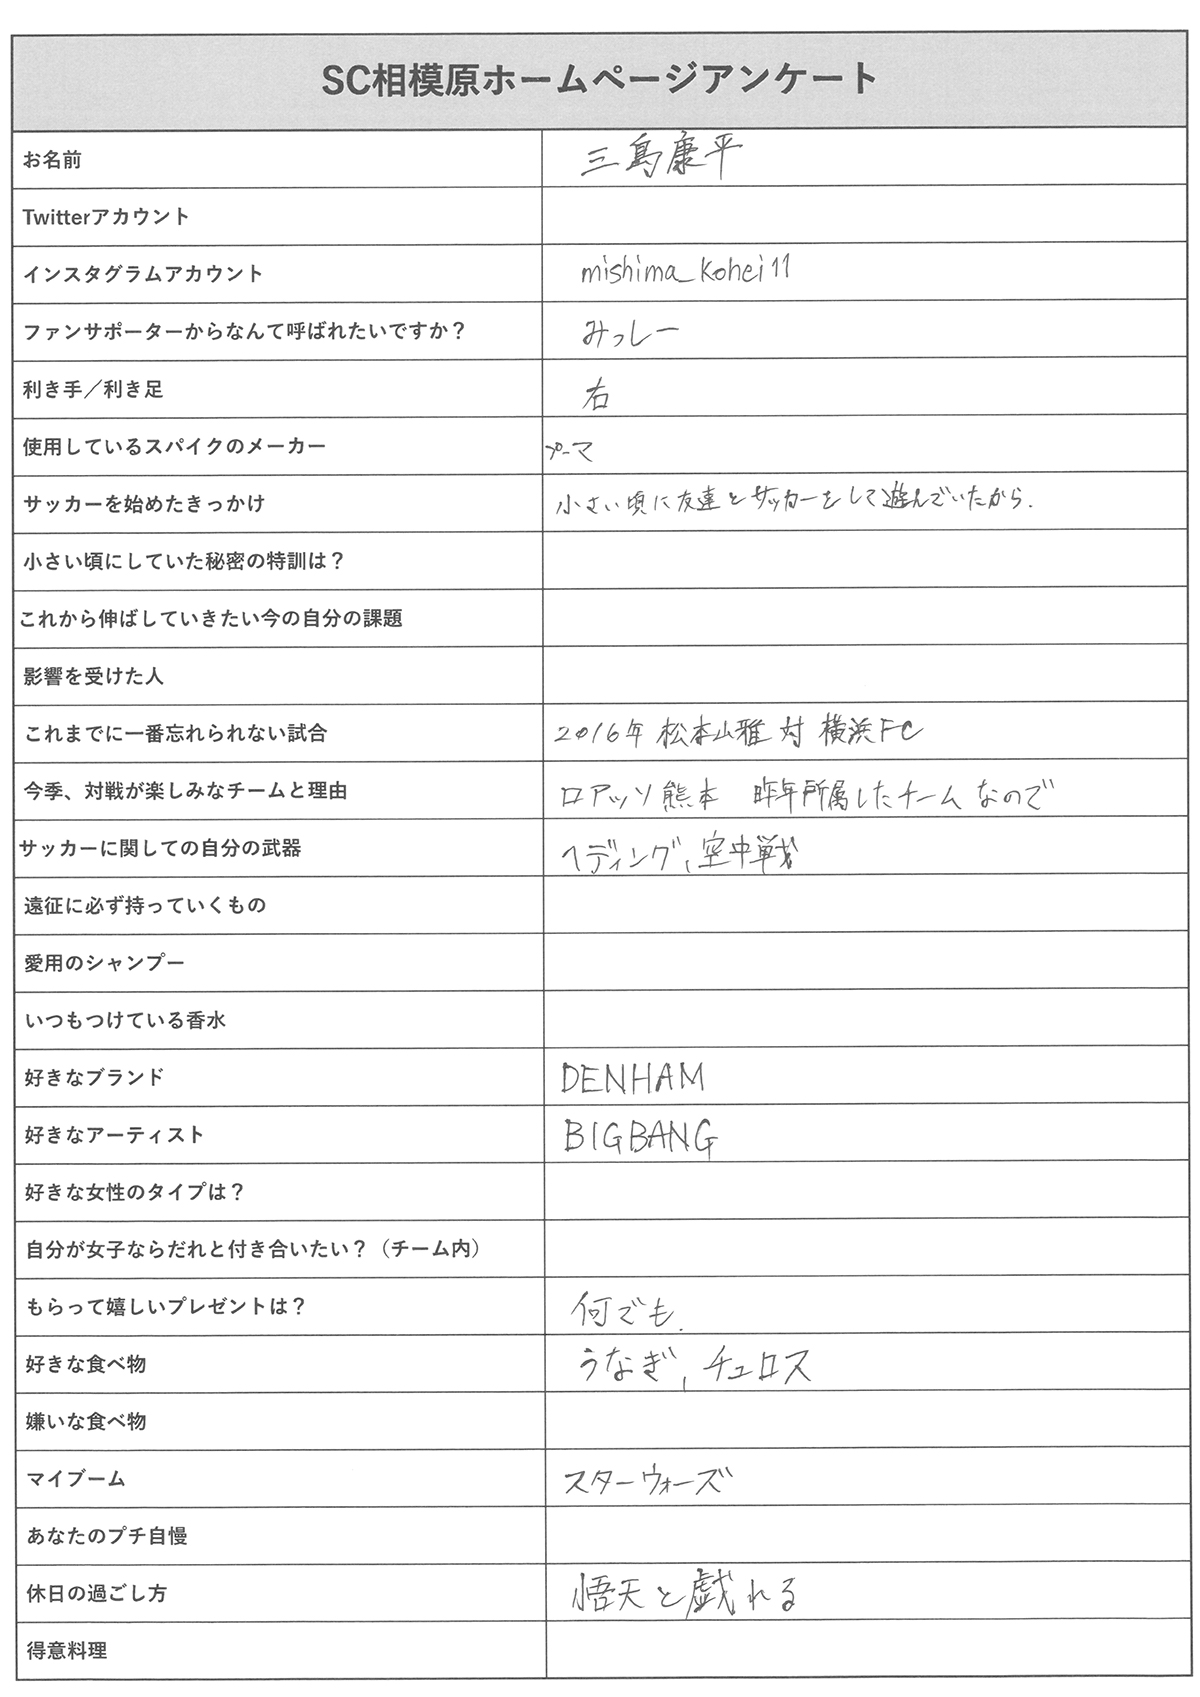 SC相模原ホームページアンケート
お名前 三島康平
Twitterアカウント
インスタグラムアカウント mishima_kohei11
ファンサポーターからなんて呼ばれたいですか？ みっしー
利き手／利き足 右
使用しているスパイクのメーカー プーマ
サッカーを始めたきっかけ 小さい頃に友達とサッカーをして遊んでいたから.
小さい頃にしていた秘密の特訓は？
これから伸ばしていきたい今の自分の課題
影響を受けた人
これまでに一番忘れられない試合 2016年 松本山雅 対 横浜FC
今季、対戦が楽しみなチームと理由 ロアッソ熊本 昨年所属したチームなので
サッカーに関しての自分の武器 ヘディング、空中戦
遠征に必ず持っていくもの
愛用のシャンプー
いつもつけている香水
好きなブランド DENHAM
好きなアーティスト BIGBANG
好きな女性のタイプは？
自分が女子ならだれと付き合いたい？（チーム内）
もらって嬉しいプレゼントは？ 何でも.
好きな食べ物 うなぎ、チュロス
嫌いな食べ物
マイブーム スターウォーズ
あなたのプチ自慢
休日の過ごし方 悟天と戯れる
得意料理